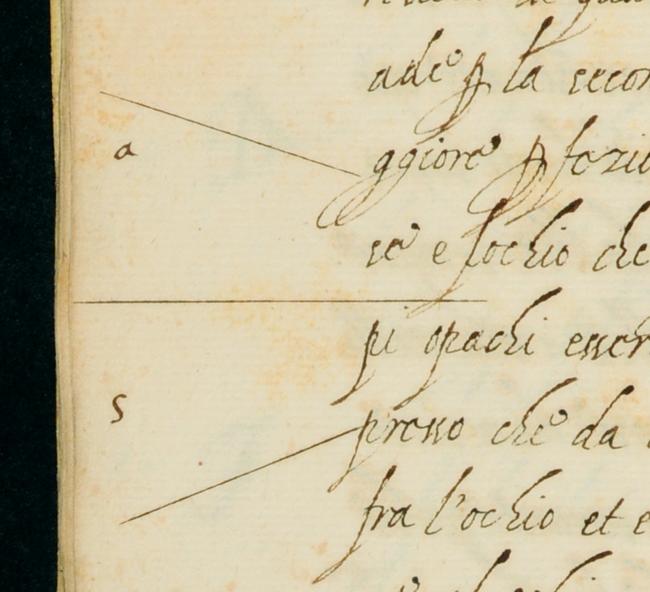 ade ꝑ la secon
a
ggiore ꝑ fo
se e l'ochio che
pi opachi esser
s
presso che da
fra l'ochio et e